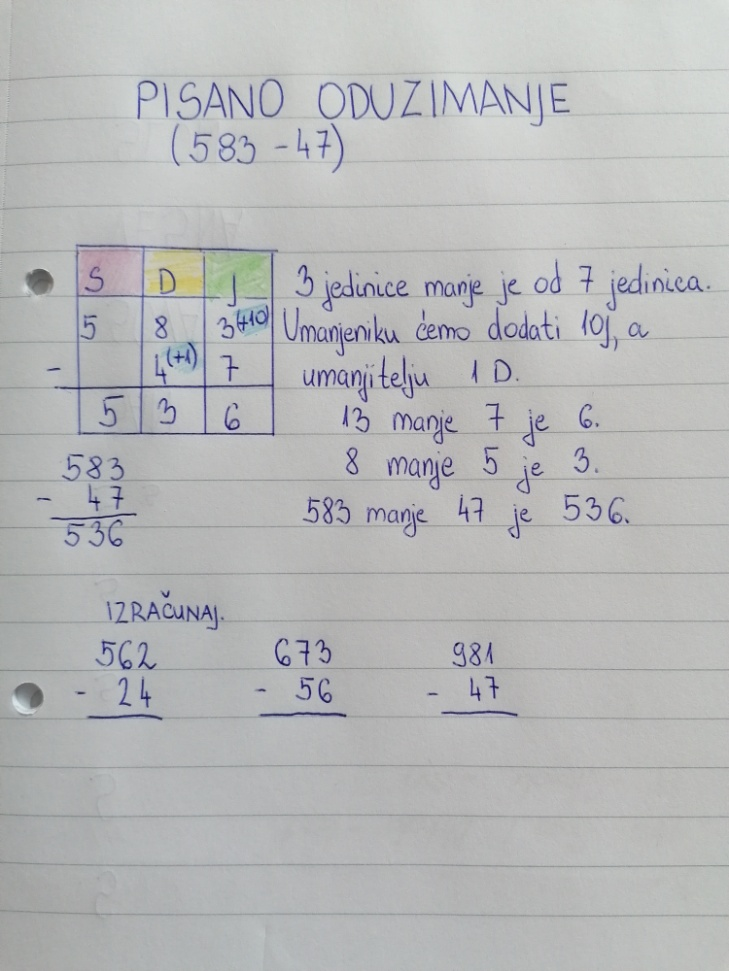 PISANO ODUZIMANJE
(583 - 47)
S D J
5 8 3(+10)
- 4(+1) 7
5 3 6
3 jedinice manje je od 7 jedinica.
Umanjeniku ćemo dodati 10J, a
umanjitelju 1 D.
13 manje 7 je 6.
8 manje 5 je 3.
583 manje 47 je 536.
583
- 47
536
IZRAČUNAJ.
562 673 981
- 24 - 56 - 47